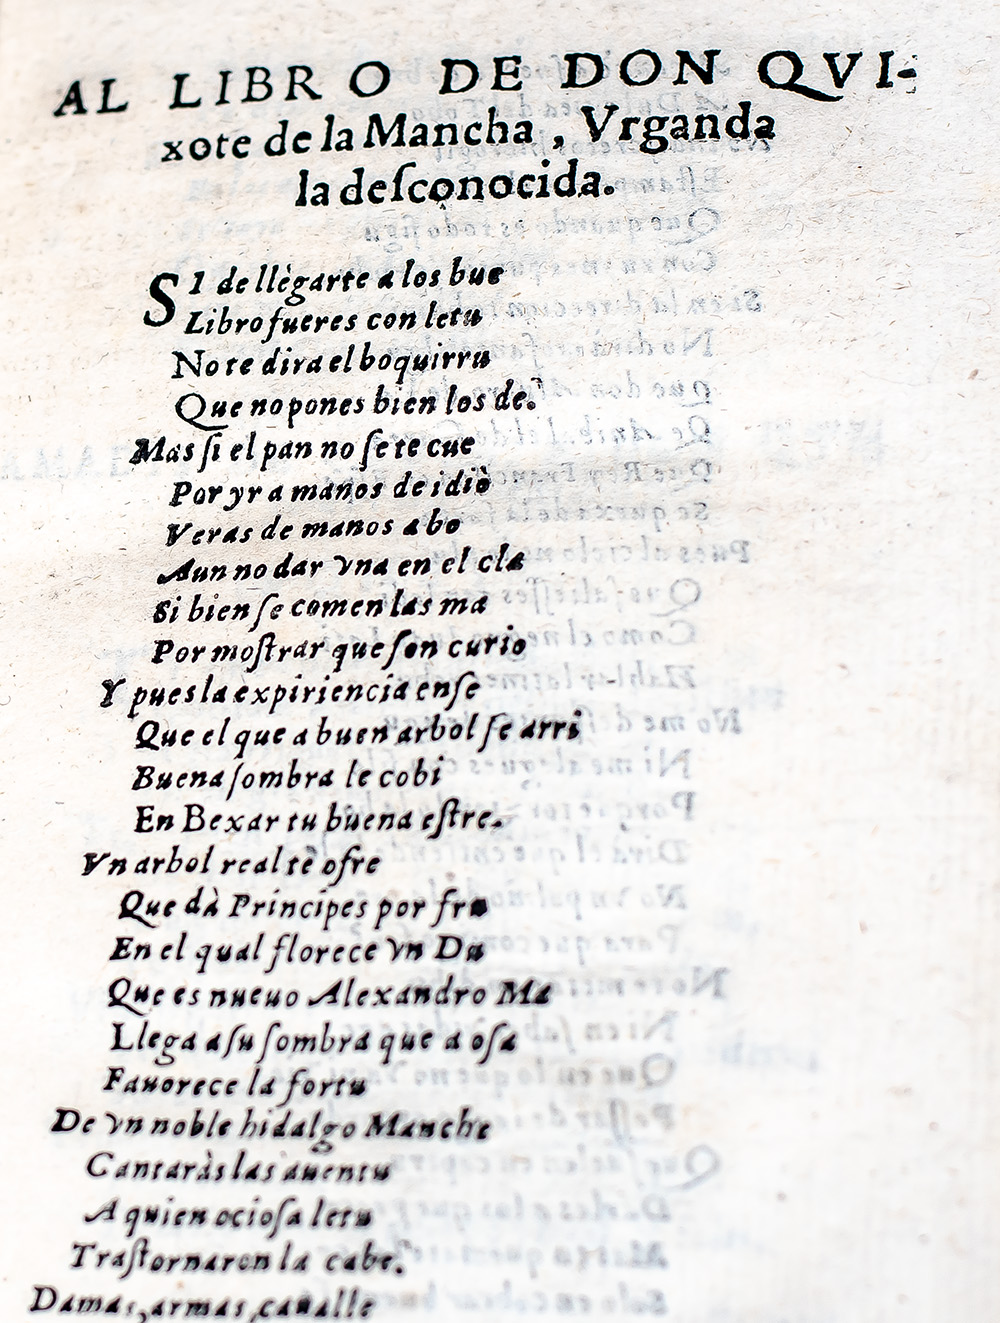 AL LIBRO DE DON QVI-
xote de la Mancha, Vrganda
la deſconocida.
SI de llègarte a los bue
Libro fueres con letu
No te dira el boquirru
Que no pones bien los de.
Mas ſi el pan no ſe te cue
Por yr a manos de idiò
Veras de manos a bo
Aun no dar vna en el cla
Si bien ſe comen las ma
Por moſtrar que ſon curio
Y pues la expiriencia enſe
Que el que a buen arbol ſe arri
Buena ſombra le cobi
En Bexar tu buena eſtre.
Vn arbol real te ofre
Que dà Principes por fru
En el qual florece vn Du
Que es nueuo Alexandro Ma
Llega a ſu ſombra que a oſa
Fauorece la fortu
De vn noble hidalgo Manche
Cantaràs las auentu
A quien ocioſa letu
Traſtornaron la cabe.
Damas, armas, caualle